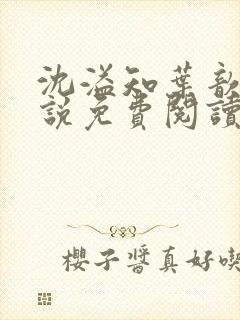 沈溢知葉歆
說免費閱讀
櫻子醬真好喫